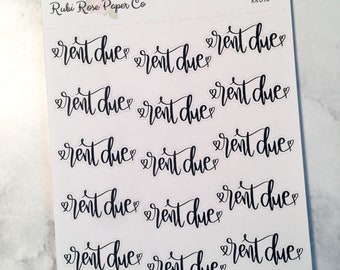 Rubi Rose Paper Co
rent due rent due rent due
rent due rent due rent due
rent due rent due rent due
rent due rent due rent due
rent due rent due rent due